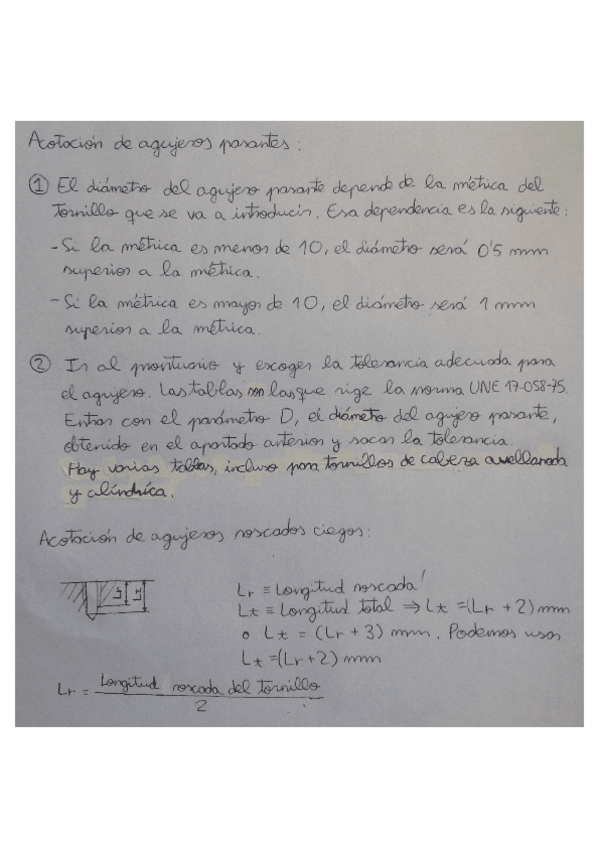 Acotación de agujeros pasantes:
① El diámetro del agujero pasante depende de la métrica del
tornillo que se va a introducir. Esa dependencia es la siguiente:
- Si la métrica es menor de 10, el diámetro será 0'5 mm
superior a la métrica.
- Si la métrica es mayor de 10, el diámetro será 1 mm
superior a la métrica.
② Ir al prontuario y escoger la tolerancia adecuada para
el agujero. Las tablas son las que rige la norma UNE 17-058-75.
Entrar con el parámetro D, el diámetro del agujero pasante,
obtenido en el apartado anterior y sacar la tolerancia.
Hay varias tablas, incluso para tornillos de cabeza avellanada
y cilíndrica.
Acotación de agujeros roscados ciegos:
Lr ≡ Longitud roscada
Lt ≡ Longitud total ⇒ Lt = (Lr + 2) mm
o Lt = (Lr + 3) mm. Podemos usar
Lt = (Lr + 2) mm
Lr Lt
Lr = Longitud roscada del tornillo
2